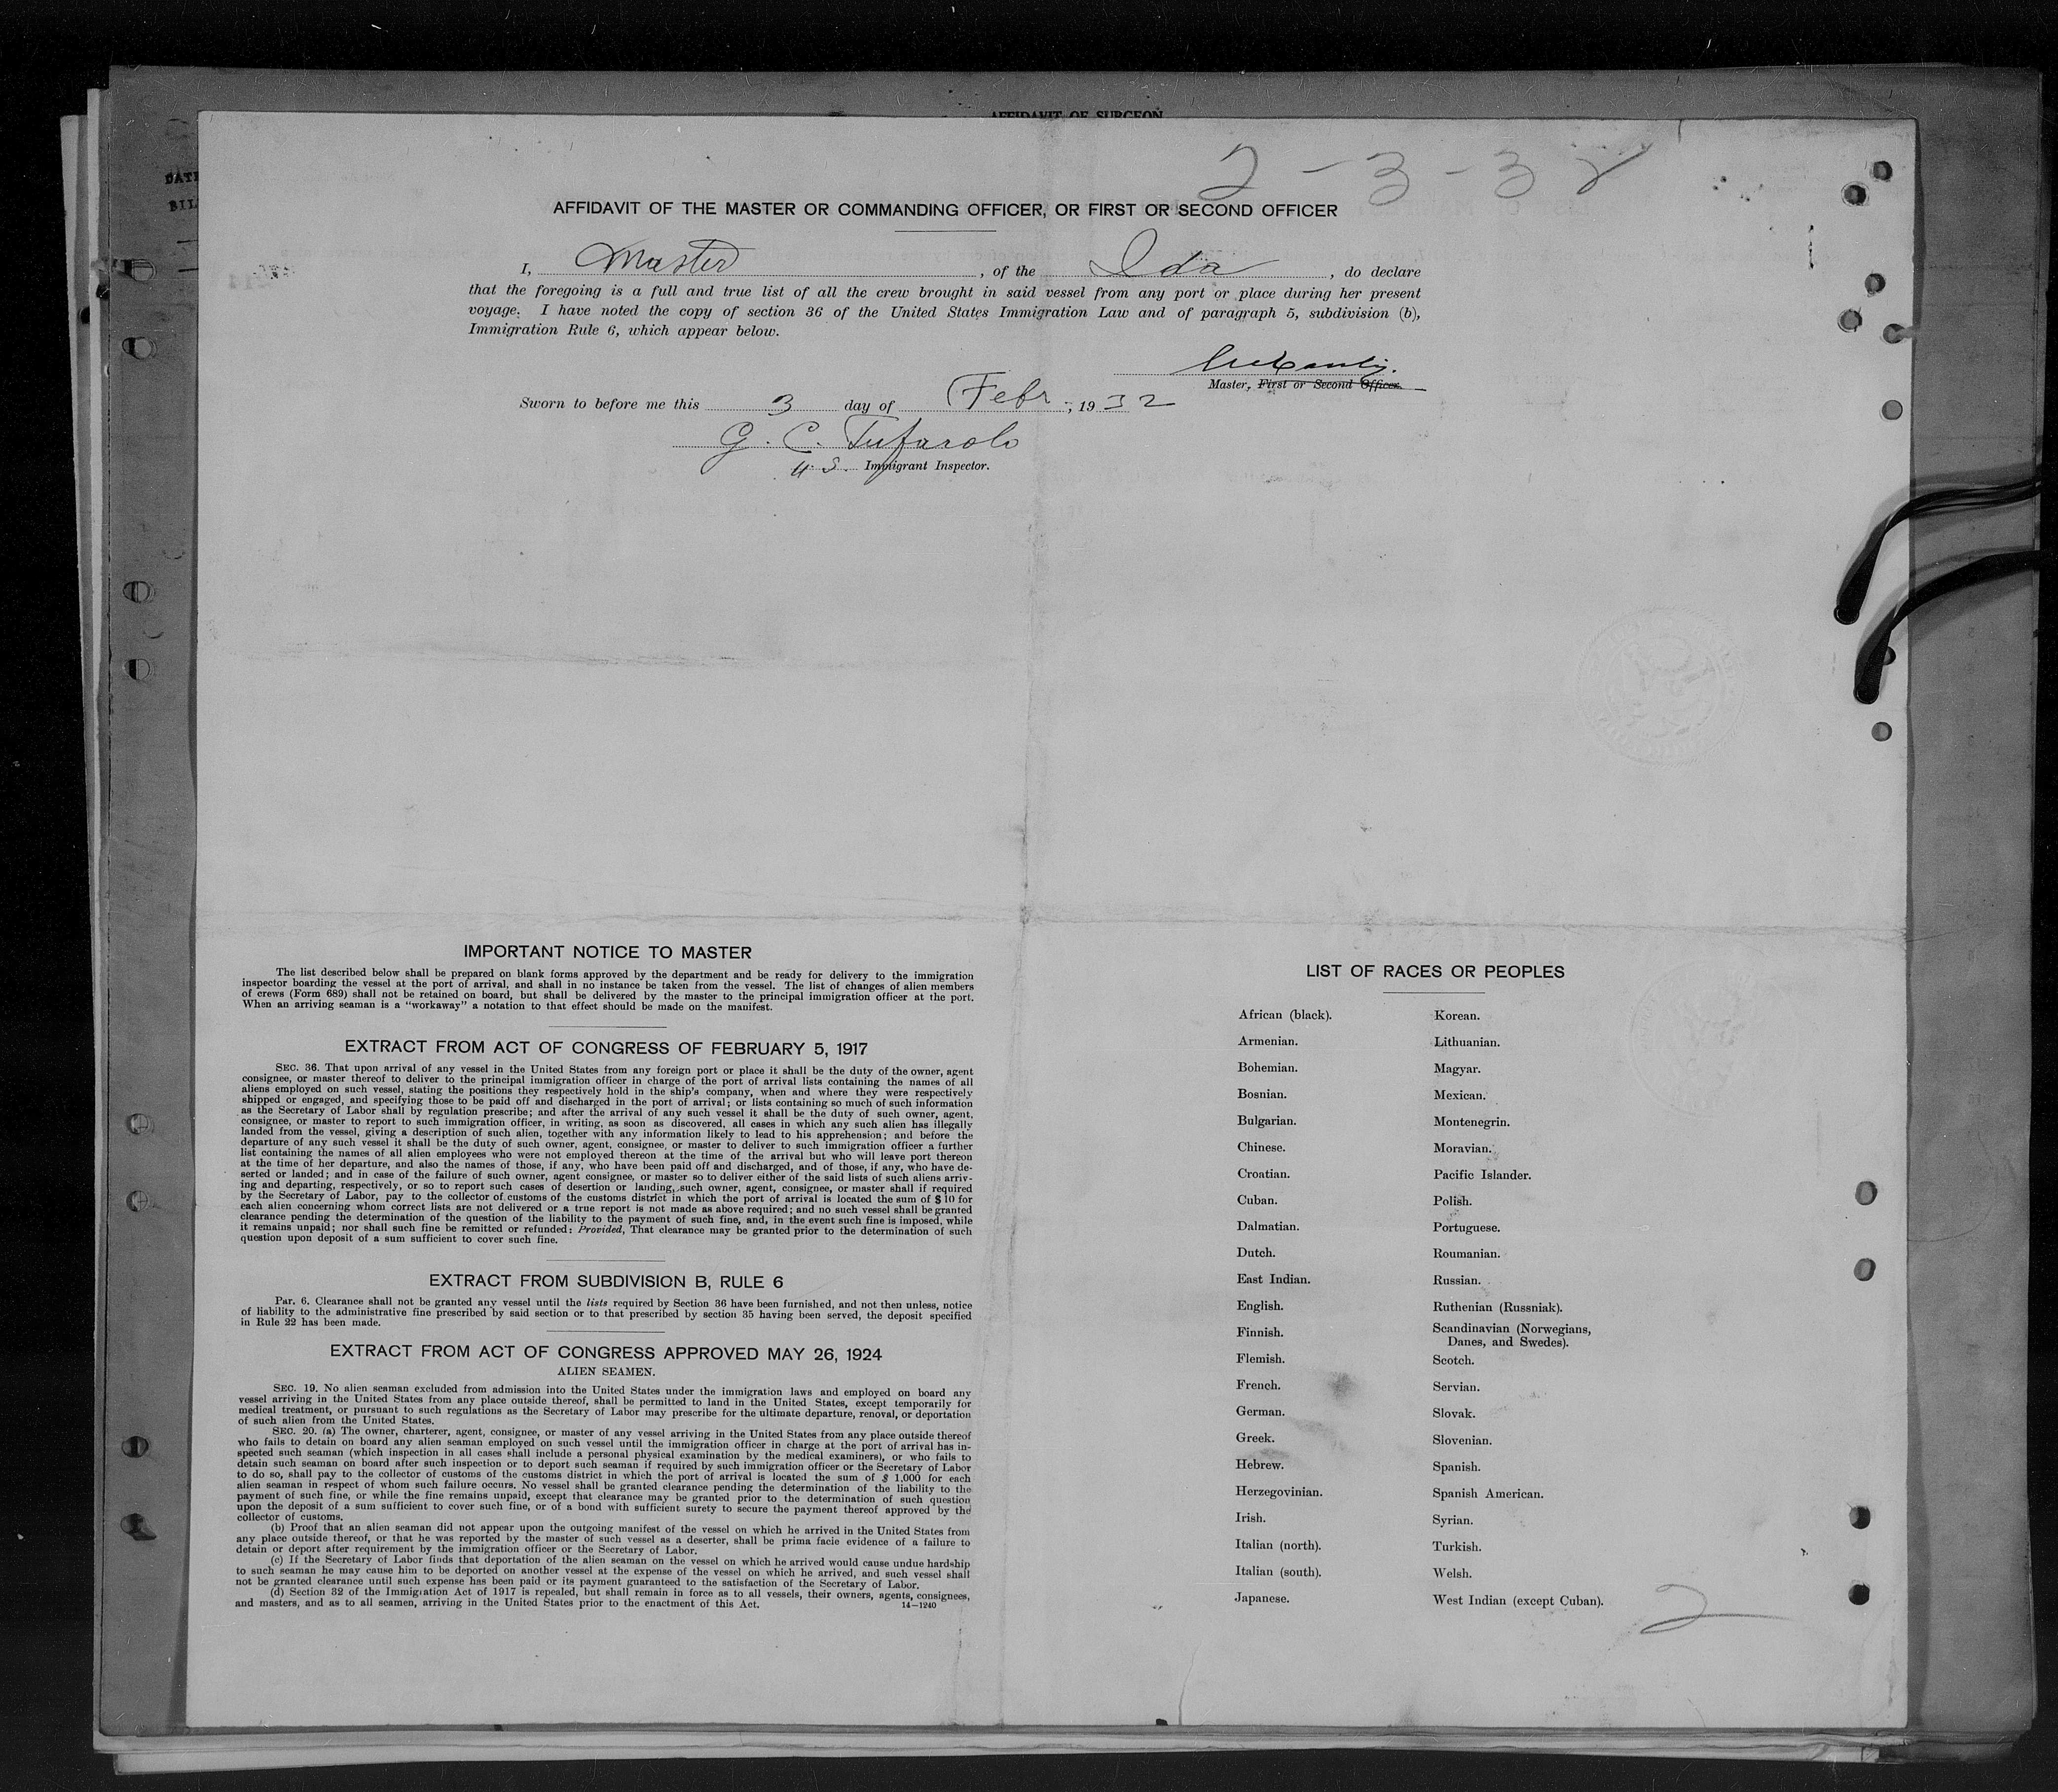 AFFIDAVIT OF SURGEON
DATE
BIL
2-3-32
AFFIDAVIT OF THE MASTER OR COMMANDING OFFICER, OR FIRST OR SECOND OFFICER
I, Master, of the Ida, do declare
that the foregoing is a full and true list of all the crew brought in said vessel from any port or place during her present
voyage. I have noted the copy of section 36 of the United States Immigration Law and of paragraph 5, subdivision (b),
Immigration Rule 6, which appear below.
Master, First or Second Officer.
Sworn to before me this 3 day of Febr, 1932
G. C. Tufarolo
U.S. Immigrant Inspector.
IMPORTANT NOTICE TO MASTER
The list described below shall be prepared on blank forms approved by the department and be ready for delivery to the immigration
inspector boarding the vessel at the port of arrival, and shall in no instance be taken from the vessel. The list of changes of alien members
of crews (Form 689) shall not be retained on board, but shall be delivered by the master to the principal immigration officer at the port.
When an arriving seaman is a "workaway" a notation to that effect should be made on the manifest.
EXTRACT FROM ACT OF CONGRESS OF FEBRUARY 5, 1917
SEC. 36. That upon arrival of any vessel in the United States from any foreign port or place it shall be the duty of the owner, agent
consignee, or master thereof to deliver to the principal immigration officer in charge of the port of arrival lists containing the names of all
aliens employed on such vessel, stating the positions they respectively hold in the ship's company, when and where they were respectively
shipped or engaged, and specifying those to be paid off and discharged in the port of arrival; or lists containing so much of such information
as the Secretary of Labor shall by regulation prescribe; and after the arrival of any such vessel it shall be the duty of such owner, agent,
consignee, or master to report to such immigration officer, in writing, as soon as discovered, all cases in which any such alien has illegally
landed from the vessel, giving a description of such alien, together with any information likely to lead to his apprehension; and before the
departure of any such vessel it shall be the duty of such owner, agent, consignee, or master to deliver to such immigration officer a further
list containing the names of all alien employees who were not employed thereon at the time of the arrival but who will leave port thereon
at the time of her departure, and also the names of those, if any, who have been paid off and discharged, and of those, if any, who have de-
serted or landed; and in case of the failure of such owner, agent consignee, or master so to deliver either of the said lists of such aliens arriv-
ing and departing, respectively, or so to report such cases of desertion or landing, such owner, agent, consignee, or master shall if required
by the Secretary of Labor, pay to the collector of customs of the customs district in which the port of arrival is located the sum of $10 for
each alien concerning whom correct lists are not delivered or a true report is not made as above required; and no such vessel shall be granted
clearance pending the determination of the question of the liability to the payment of such fine, and, in the event such fine is imposed, while
it remains unpaid; nor shall such fine be remitted or refunded: Provided, That clearance may be granted prior to the determination of such
question upon deposit of a sum sufficient to cover such fine.
EXTRACT FROM SUBDIVISION B, RULE 6
Par. 6. Clearance shall not be granted any vessel until the lists required by Section 36 have been furnished, and not then unless, notice
of liability to the administrative fine prescribed by said section or to that prescribed by section 35 having been served, the deposit specified
in Rule 22 has been made.
EXTRACT FROM ACT OF CONGRESS APPROVED MAY 26, 1924
ALIEN SEAMEN.
SEC. 19. No alien seaman excluded from admission into the United States under the immigration laws and employed on board any
vessel arriving in the United States from any place outside thereof, shall be permitted to land in the United States, except temporarily for
medical treatment, or pursuant to such regulations as the Secretary of Labor may prescribe for the ultimate departure, removal, or deportation
of such alien from the United States.
SEC. 20. (a) The owner, charterer, agent, consignee, or master of any vessel arriving in the United States from any place outside thereof
who fails to detain on board any alien seaman employed on such vessel until the immigration officer in charge at the port of arrival has in-
spected such seaman (which inspection in all cases shall include a personal physical examination by the medical examiners), or who fails to
detain such seaman on board after such inspection or to deport such seaman if required by such immigration officer or the Secretary of Labor
to do so, shall pay to the collector of customs of the customs district in which the port of arrival is located the sum of $1,000 for each
alien seaman in respect of whom such failure occurs. No vessel shall be granted clearance pending the determination of the liability to the
payment of such fine, or while the fine remains unpaid, except that clearance may be granted prior to the determination of such question
upon the deposit of a sum sufficient to cover such fine, or of a bond with sufficient surety to secure the payment thereof approved by the
collector of customs.
(b) Proof that an alien seaman did not appear upon the outgoing manifest of the vessel on which he arrived in the United States from
any place outside thereof, or that he was reported by the master of such vessel as a deserter, shall be prima facie evidence of a failure to
detain or deport after requirement by the immigration officer or the Secretary of Labor.
(c) If the Secretary of Labor finds that deportation of the alien seaman on the vessel on which he arrived would cause undue hardship
to such seaman he may cause him to be deported on another vessel at the expense of the vessel on which he arrived, and such vessel shall
not be granted clearance until such expense has been paid or its payment guaranteed to the satisfaction of the Secretary of Labor.
(d) Section 32 of the Immigration Act of 1917 is repealed, but shall remain in force as to all vessels, their owners, agents, consignees,
and masters, and as to all seamen, arriving in the United States prior to the enactment of this Act.
14—1240
LIST OF RACES OR PEOPLES
African (black).
Armenian.
Bohemian.
Bosnian.
Bulgarian.
Chinese.
Croatian.
Cuban.
Dalmatian.
Dutch.
East Indian.
English.
Finnish.
Flemish.
French.
German.
Greek.
Hebrew.
Herzegovinian.
Irish.
Italian (north).
Italian (south).
Japanese.
Korean.
Lithuanian.
Magyar.
Mexican.
Montenegrin.
Moravian.
Pacific Islander.
Polish.
Portuguese.
Roumanian.
Russian.
Ruthenian (Russniak).
Scandinavian (Norwegians,
Danes, and Swedes).
Scotch.
Servian.
Slovak.
Slovenian.
Spanish.
Spanish American.
Syrian.
Turkish.
Welsh.
West Indian (except Cuban).
2